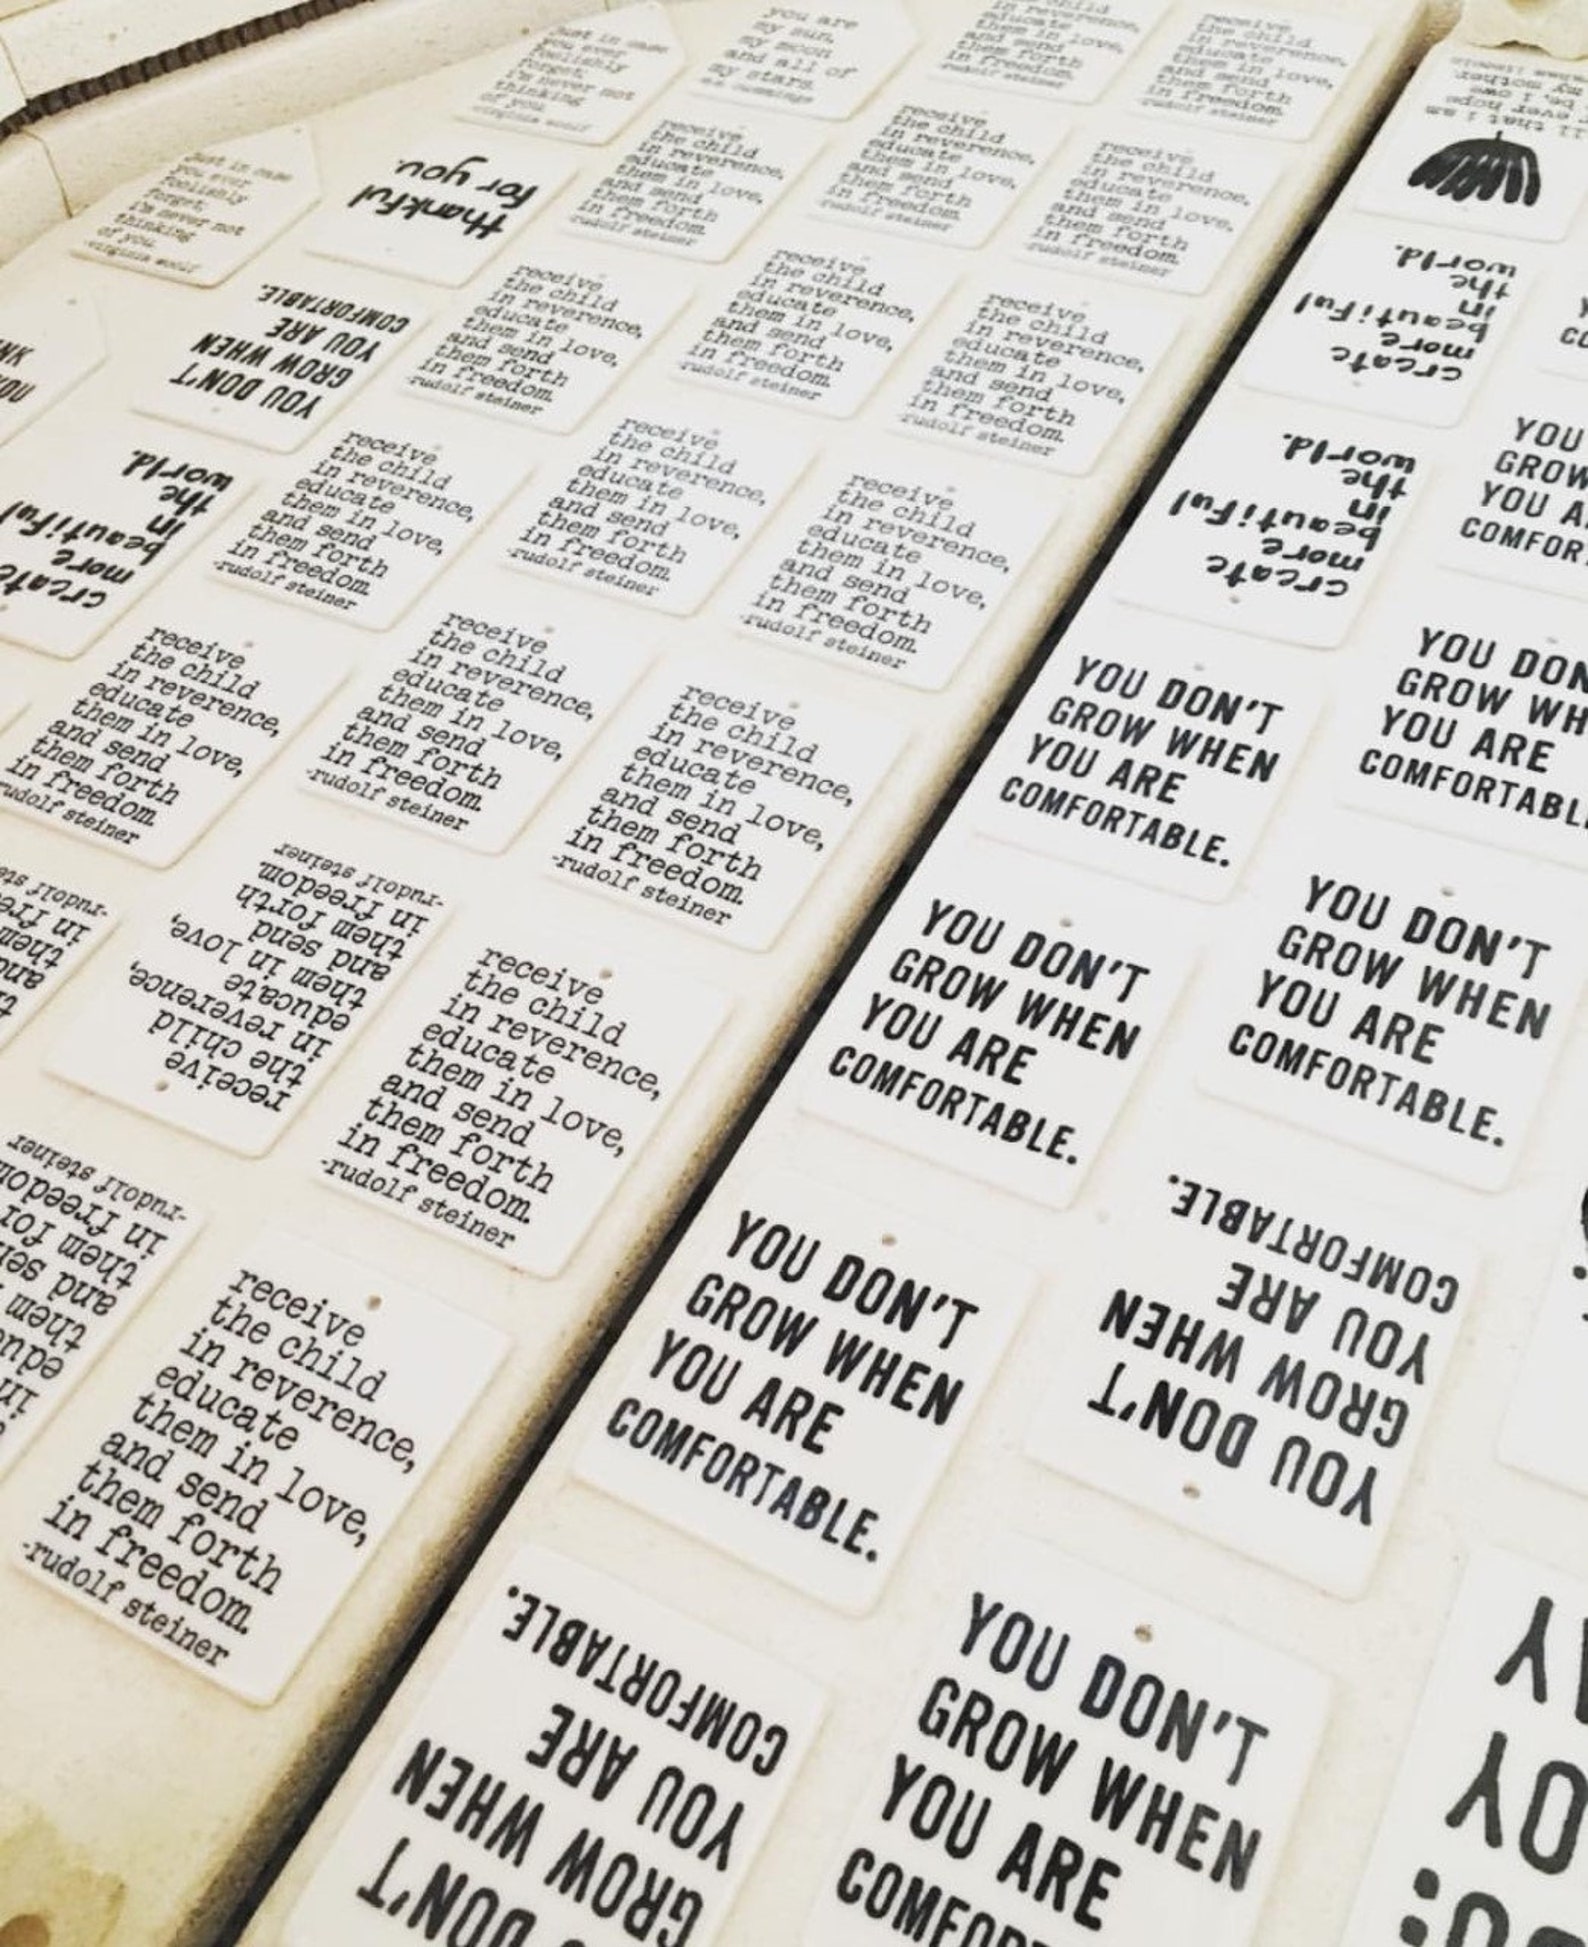 just in case
you ever
foolishly
forget,
i'm never not
thinking
of you.
-virginia woolf
you are
my sun,
my moon
and all of
my stars.
e.e. cummings
in reverence,
educate
them in love,
and send
them forth
in freedom.
-rudolf steiner
receive
the child
in reverence,
educate
them in love,
and send
them forth
in freedom.
-rudolf steiner
just in case
you ever
foolishly
forget,
i'm never not
thinking
of you.
-virginia woolf
thankful
for you.
receive
the child
in reverence,
educate
them in love,
and send
them forth
in freedom.
-rudolf steiner
receive
the child
in reverence,
educate
them in love,
and send
them forth
in freedom.
-rudolf steiner
receive
the child
in reverence,
educate
them in love,
and send
them forth
in freedom.
-rudolf steiner
YOU DON'T
GROW WHEN
YOU ARE
COMFORTABLE.
receive
the child
in reverence,
educate
them in love,
and send
them forth
in freedom.
-rudolf steiner
receive
the child
in reverence,
educate
them in love,
and send
them forth
in freedom.
-rudolf steiner
receive
the child
in reverence,
educate
them in love,
and send
them forth
in freedom.
-rudolf steiner
create
more
beautiful
in
the
world.
receive
the child
in reverence,
educate
them in love,
and send
them forth
in freedom.
-rudolf steiner
receive
the child
in reverence,
educate
them in love,
and send
them forth
in freedom.
-rudolf steiner
receive
the child
in reverence,
educate
them in love,
and send
them forth
in freedom.
-rudolf steiner
receive
the child
in reverence,
educate
them in love,
and send
them forth
in freedom.
-rudolf steiner
receive
the child
in reverence,
educate
them in love,
and send
them forth
in freedom.
-rudolf steiner
receive
the child
in reverence,
educate
them in love,
and send
them forth
in freedom.
-rudolf steiner
receive
the child
in reverence,
educate
them in love,
and send
them forth
in freedom.
-rudolf steiner
receive
the child
in reverence,
educate
them in love,
and send
them forth
in freedom.
-rudolf steiner
them
and send
them for
in freedom
-rudolf steiner
receive
the child
in reverence,
educate
them in love,
and send
them forth
in freedom.
-rudolf steiner
all that i am
ever hope
be, i owe
my mother.
create
more
beautiful
in
the
world.
create
more
beautiful
in
the
world.
YOU
GROW
YOU A
COMFOR
YOU DON'T
GROW WHEN
YOU ARE
COMFORTABLE.
YOU DON
GROW WH
YOU ARE
COMFORTABL
YOU DON'T
GROW WHEN
YOU ARE
COMFORTABLE.
YOU DON'T
GROW WHEN
YOU ARE
COMFORTABLE.
YOU DON'T
GROW WHEN
YOU ARE
COMFORTABLE.
YOU DON'T
GROW WHEN
YOU ARE
COMFORTABLE.
DON'T
GROW WHEN
YOU ARE
COMFORTABLE.
YOU DON'T
GROW WHEN
YOU ARE
COMFOR